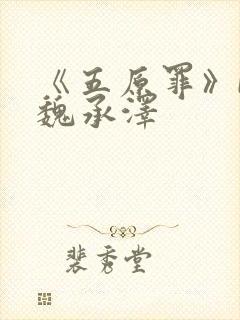 《五原罪》
魏承泽
裴秀堂